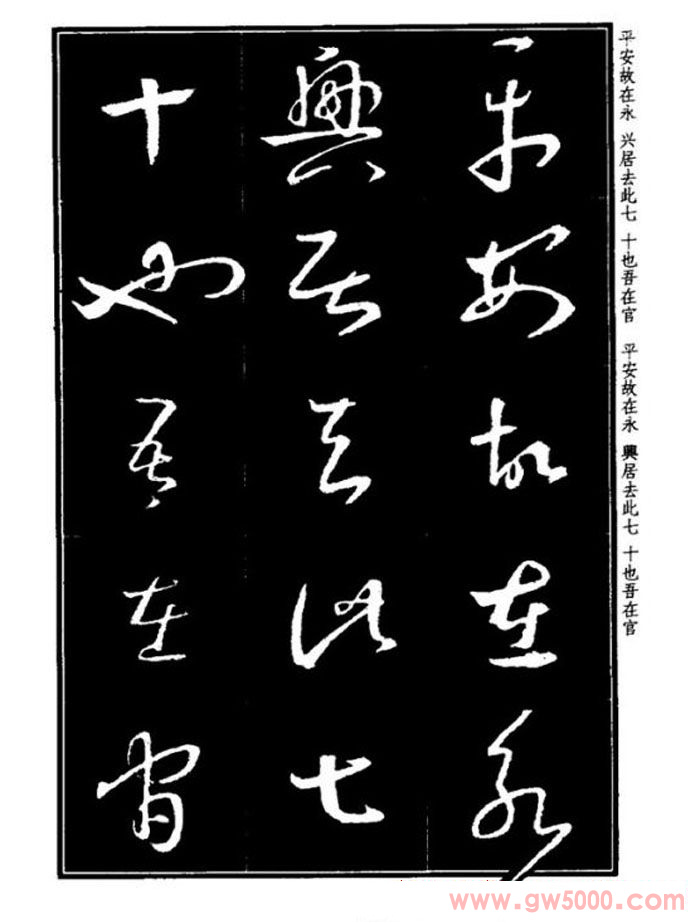 平安故在永
興居去此七
十也吾在官
平安故在永 兴居去此七 十也吾在官 平安故在永 興居去此七 十也吾在官
www.gw5000.com